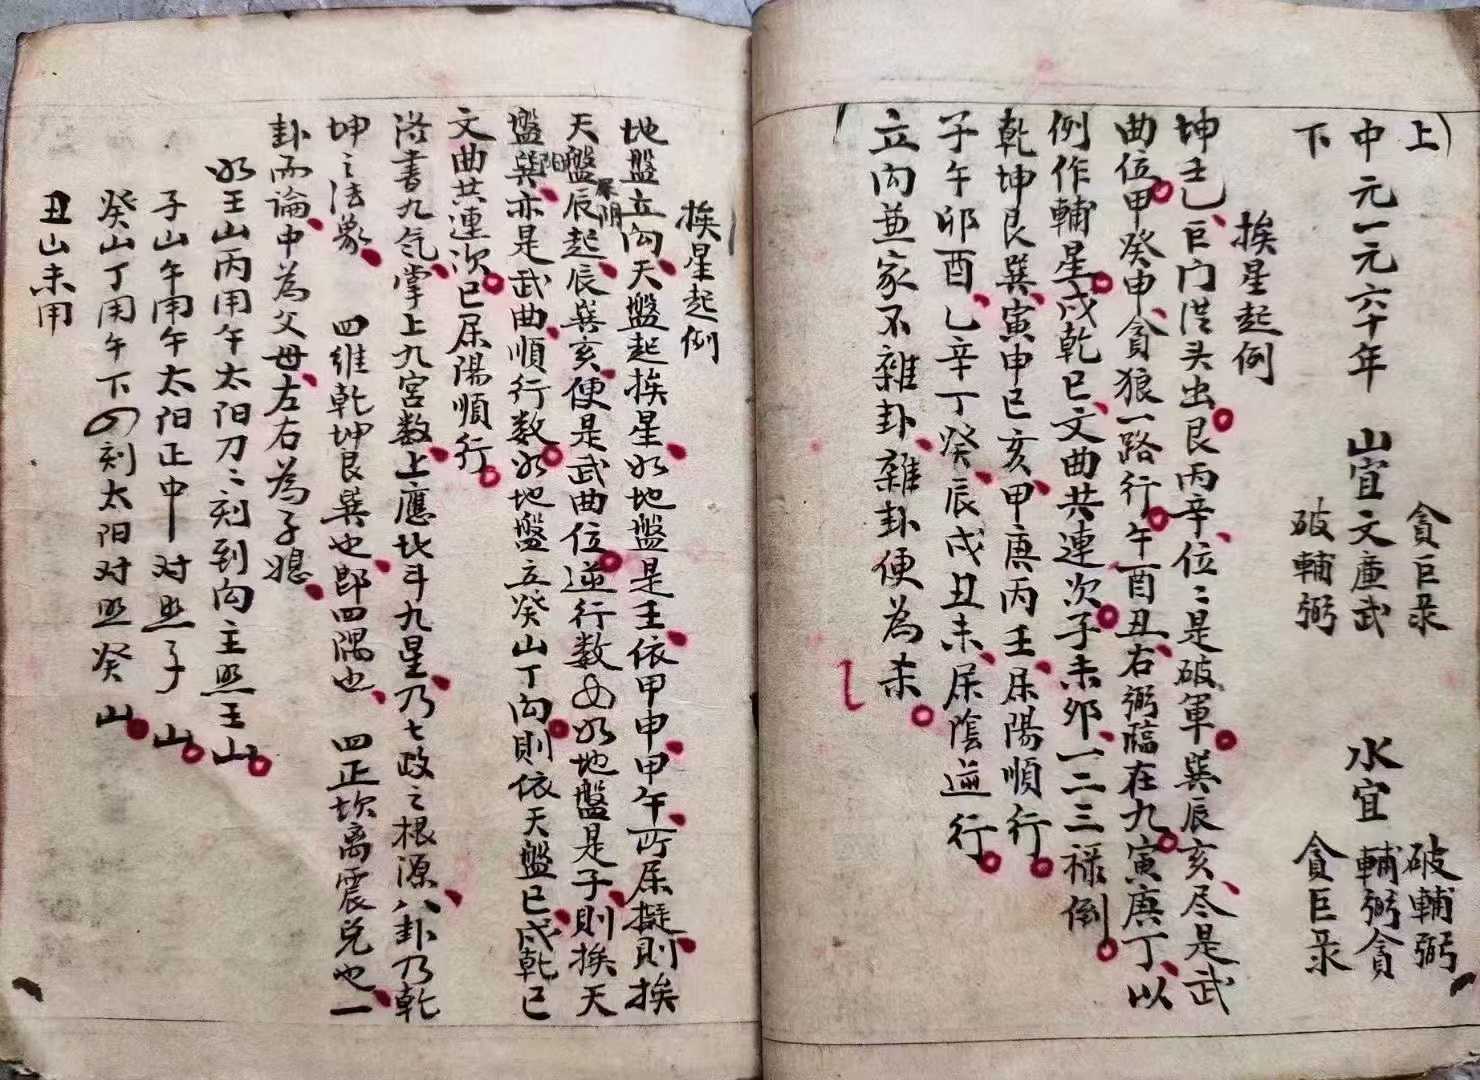 上　貪巨录　破輔弼
中元一元六十年　山宜文廉武　水宜輔弼貪
下　破輔弼　貪巨录
挨星起例
坤壬乙巨门从头出艮丙辛位〻是破軍巽辰亥尽是武
曲位甲癸申貪狼一路行午酉丑右弼臨在九寅庚丁以
例作輔星戌乾巳文曲共連次子未卯一二三禄倒
乾坤艮巽寅申巳亥甲庚丙壬屈陽順行
子午卯酉乙辛丁癸辰戌丑未屈陰逆行
立向兼家不雜卦雜卦便為杀
挨星起例
地盤立向天盤起挨星如地盤是壬依甲申甲午所屈擬則挨
天盤辰屈阴起辰巽亥便是武曲位逆行数如地盤是子則挨天
盤巽阳亦是武曲順行数如地盤立癸山丁向則依天盤巳戌乾巳
文曲共連次巳屈陽順行
洛書九气掌上九宮数上應北斗九星乃七政之根源八卦乃乾
坤之法象　四維乾坤艮巽也即四隅也　四正坎离震兑也一
卦而論中為父母左右為子媳
如壬山丙用午太阳刀〻刻到向主照壬山
子山午用午太阳正中对照子山
癸山丁用午下刻太阳对照癸山
丑山未用